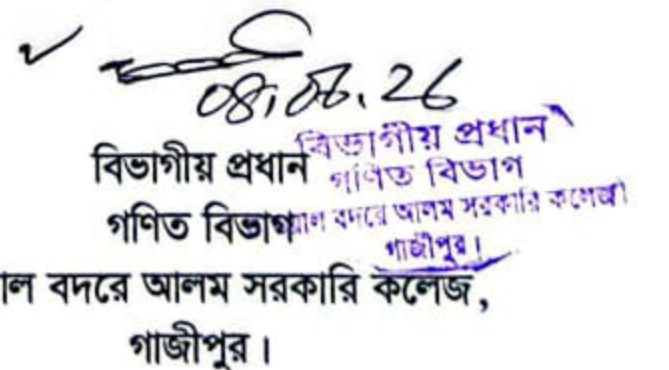 08.06.26
বিভাগীয় প্রধান
গণিত বিভাগ
বদরে আলম সরকারি কলেজ,
গাজীপুর।
বিভাগীয় প্রধান
গণিত বিভাগ
বদরে আলম সরকারি কলেজ
গাজীপুর।